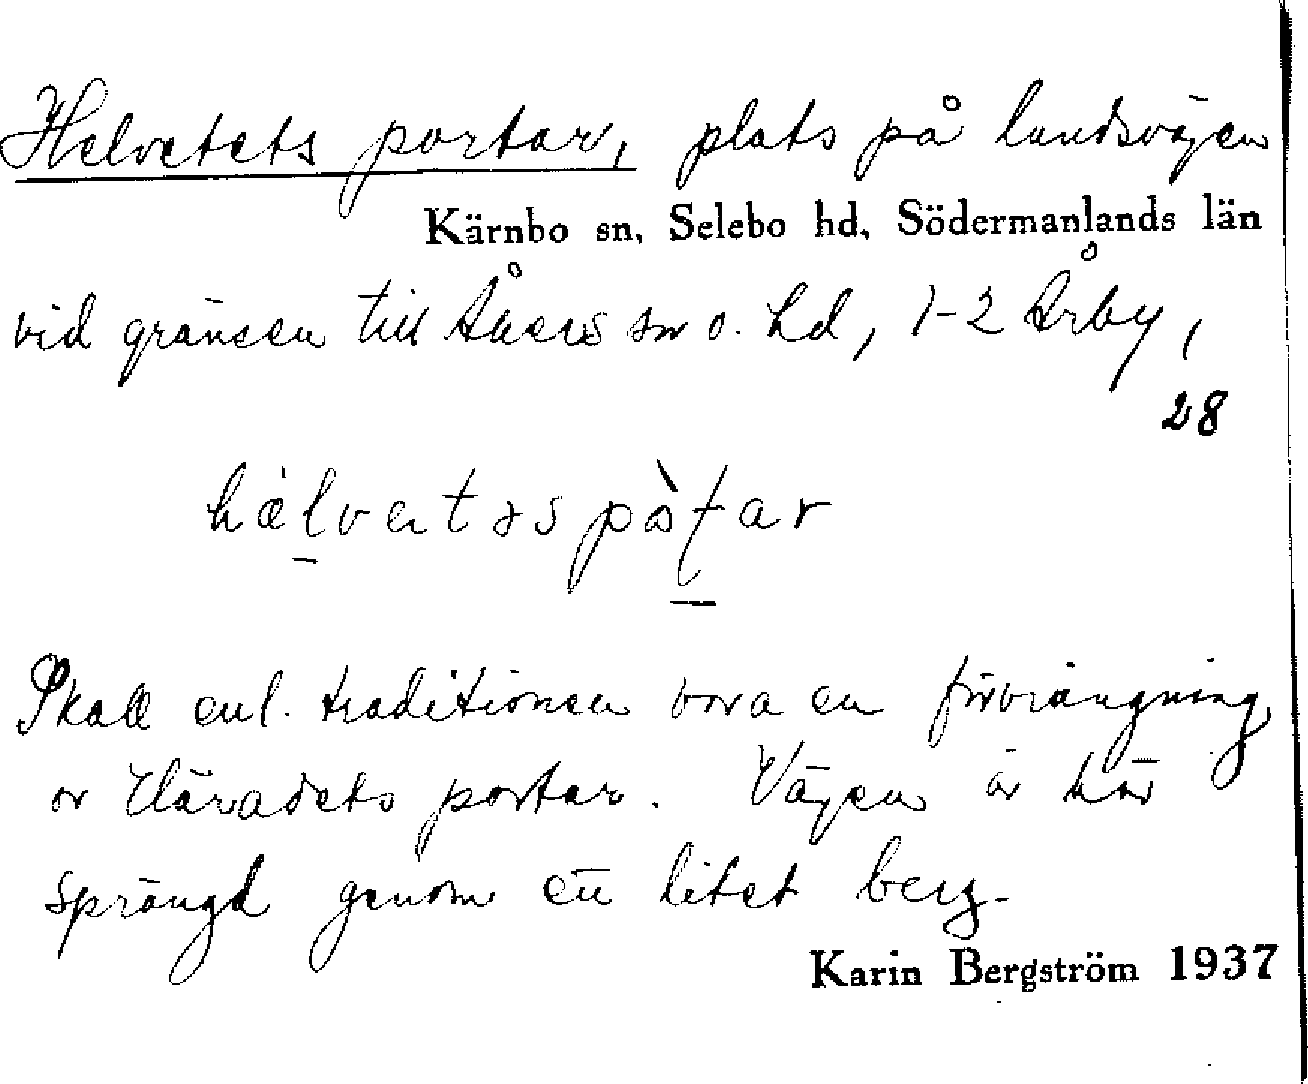 Helvetets portar, plats på landsvägen
Kärnbo sn, Selebo hd, Södermanlands län
vid gränsen till Åkers sn o. hd, 1-2 Årby,
28
Skall enl. traditionen vara en förvrängning
av Häradets portar. Vägen är här
sprängd genom ett litet berg.
Karin Bergström 1937